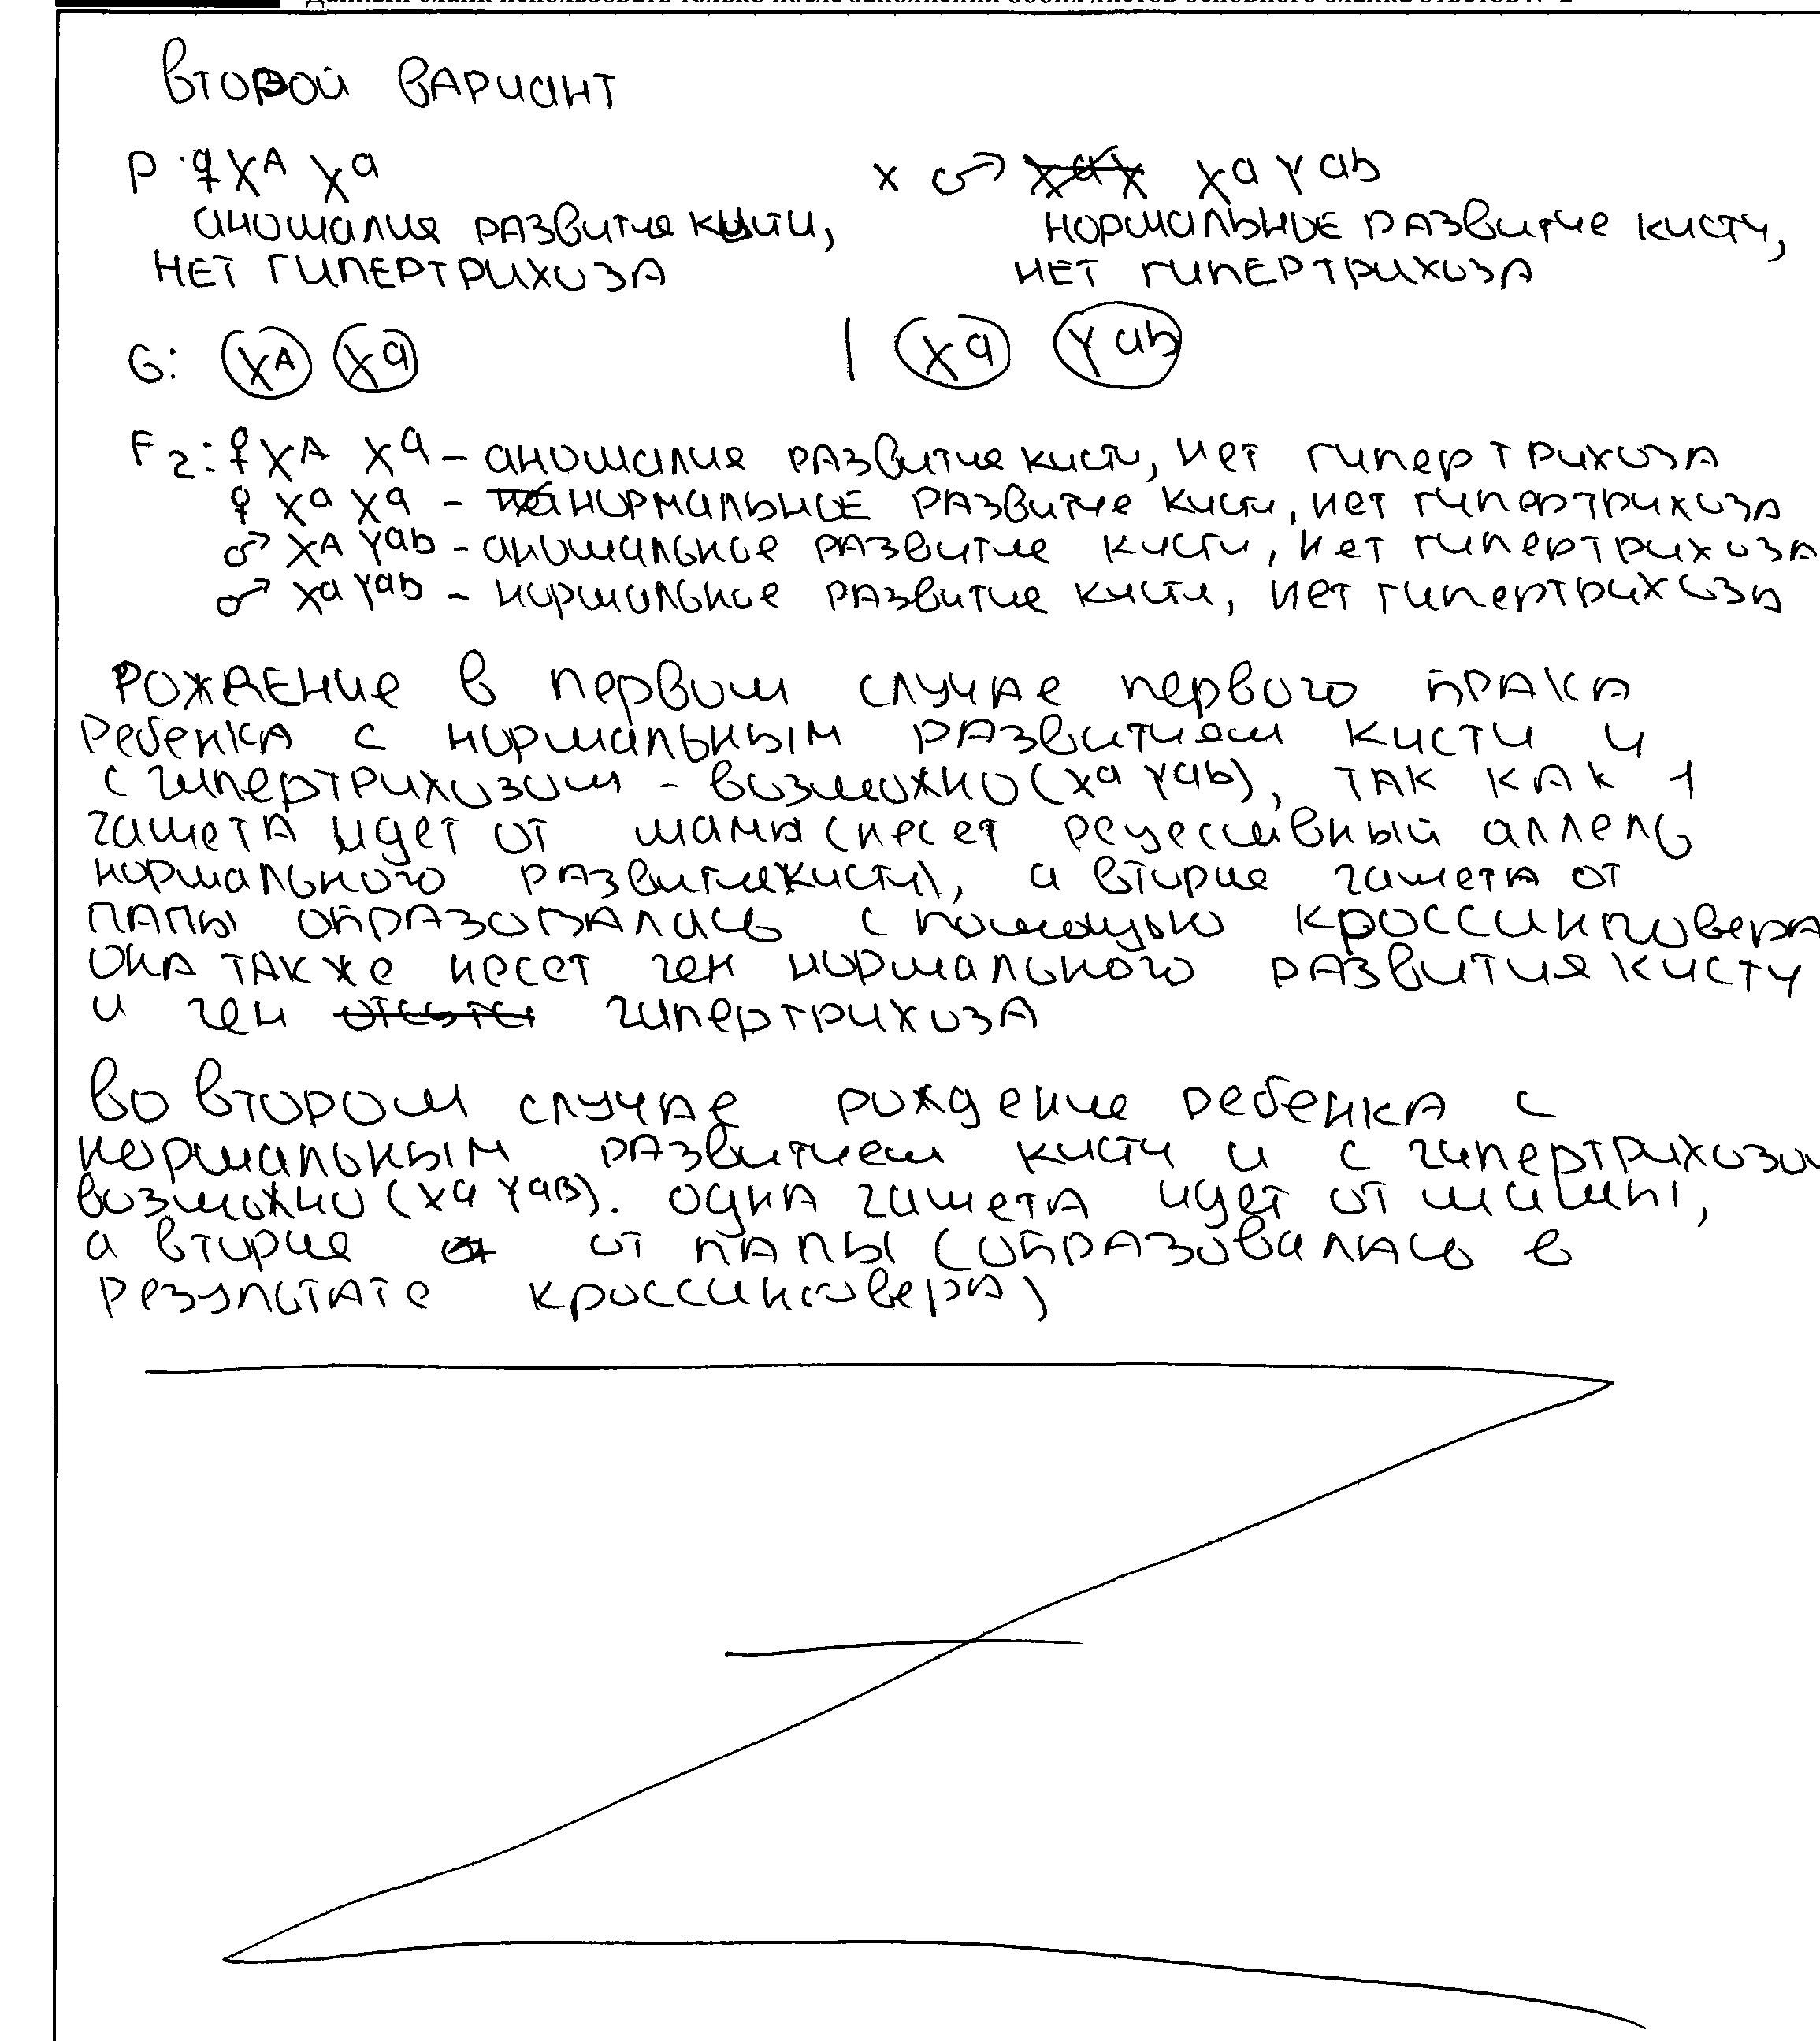 Данный бланк использовать только после заполнения обоих листов основного бланка ответов № 2
второй вариант
P ♀ X^A X^a x ♂ X^a Y^ab
аномалия развитие кисти, нормальное развитие кисти,
нет гипертрихоза нет гипертрихоза
G: X^A X^a | X^a Y^ab
F2: ♀ X^A X^a – аномалия развитие кисти, нет гипертрихоза
♀ X^a X^a – нормальное развитие кисти, нет гипертрихоза
♂ X^A Y^ab – аномальное развитие кисти, нет гипертрихоза
♂ X^a Y^ab – нормальное развитие кисти, нет гипертрихоза
Рождение в первом случае первого брака
ребенка с нормальным развитием кисти и
с гипертрихозом – возможно (X^a Y^ab), так как 1
гамета идет от мамы (несет рецессивный аллель
нормального развития кисти), а вторая гамета от
папы образовалась с помощью кроссинговера
она также несет ген нормального развития кисти
и ген гипертрихоза
Во втором случае рождение ребенка с
нормальным развитием кисти и с гипертрихозом
возможно (X^a Y^aB). одна гамета идет от мамы,
а вторая от папы (образовалась в
результате кроссинговера)